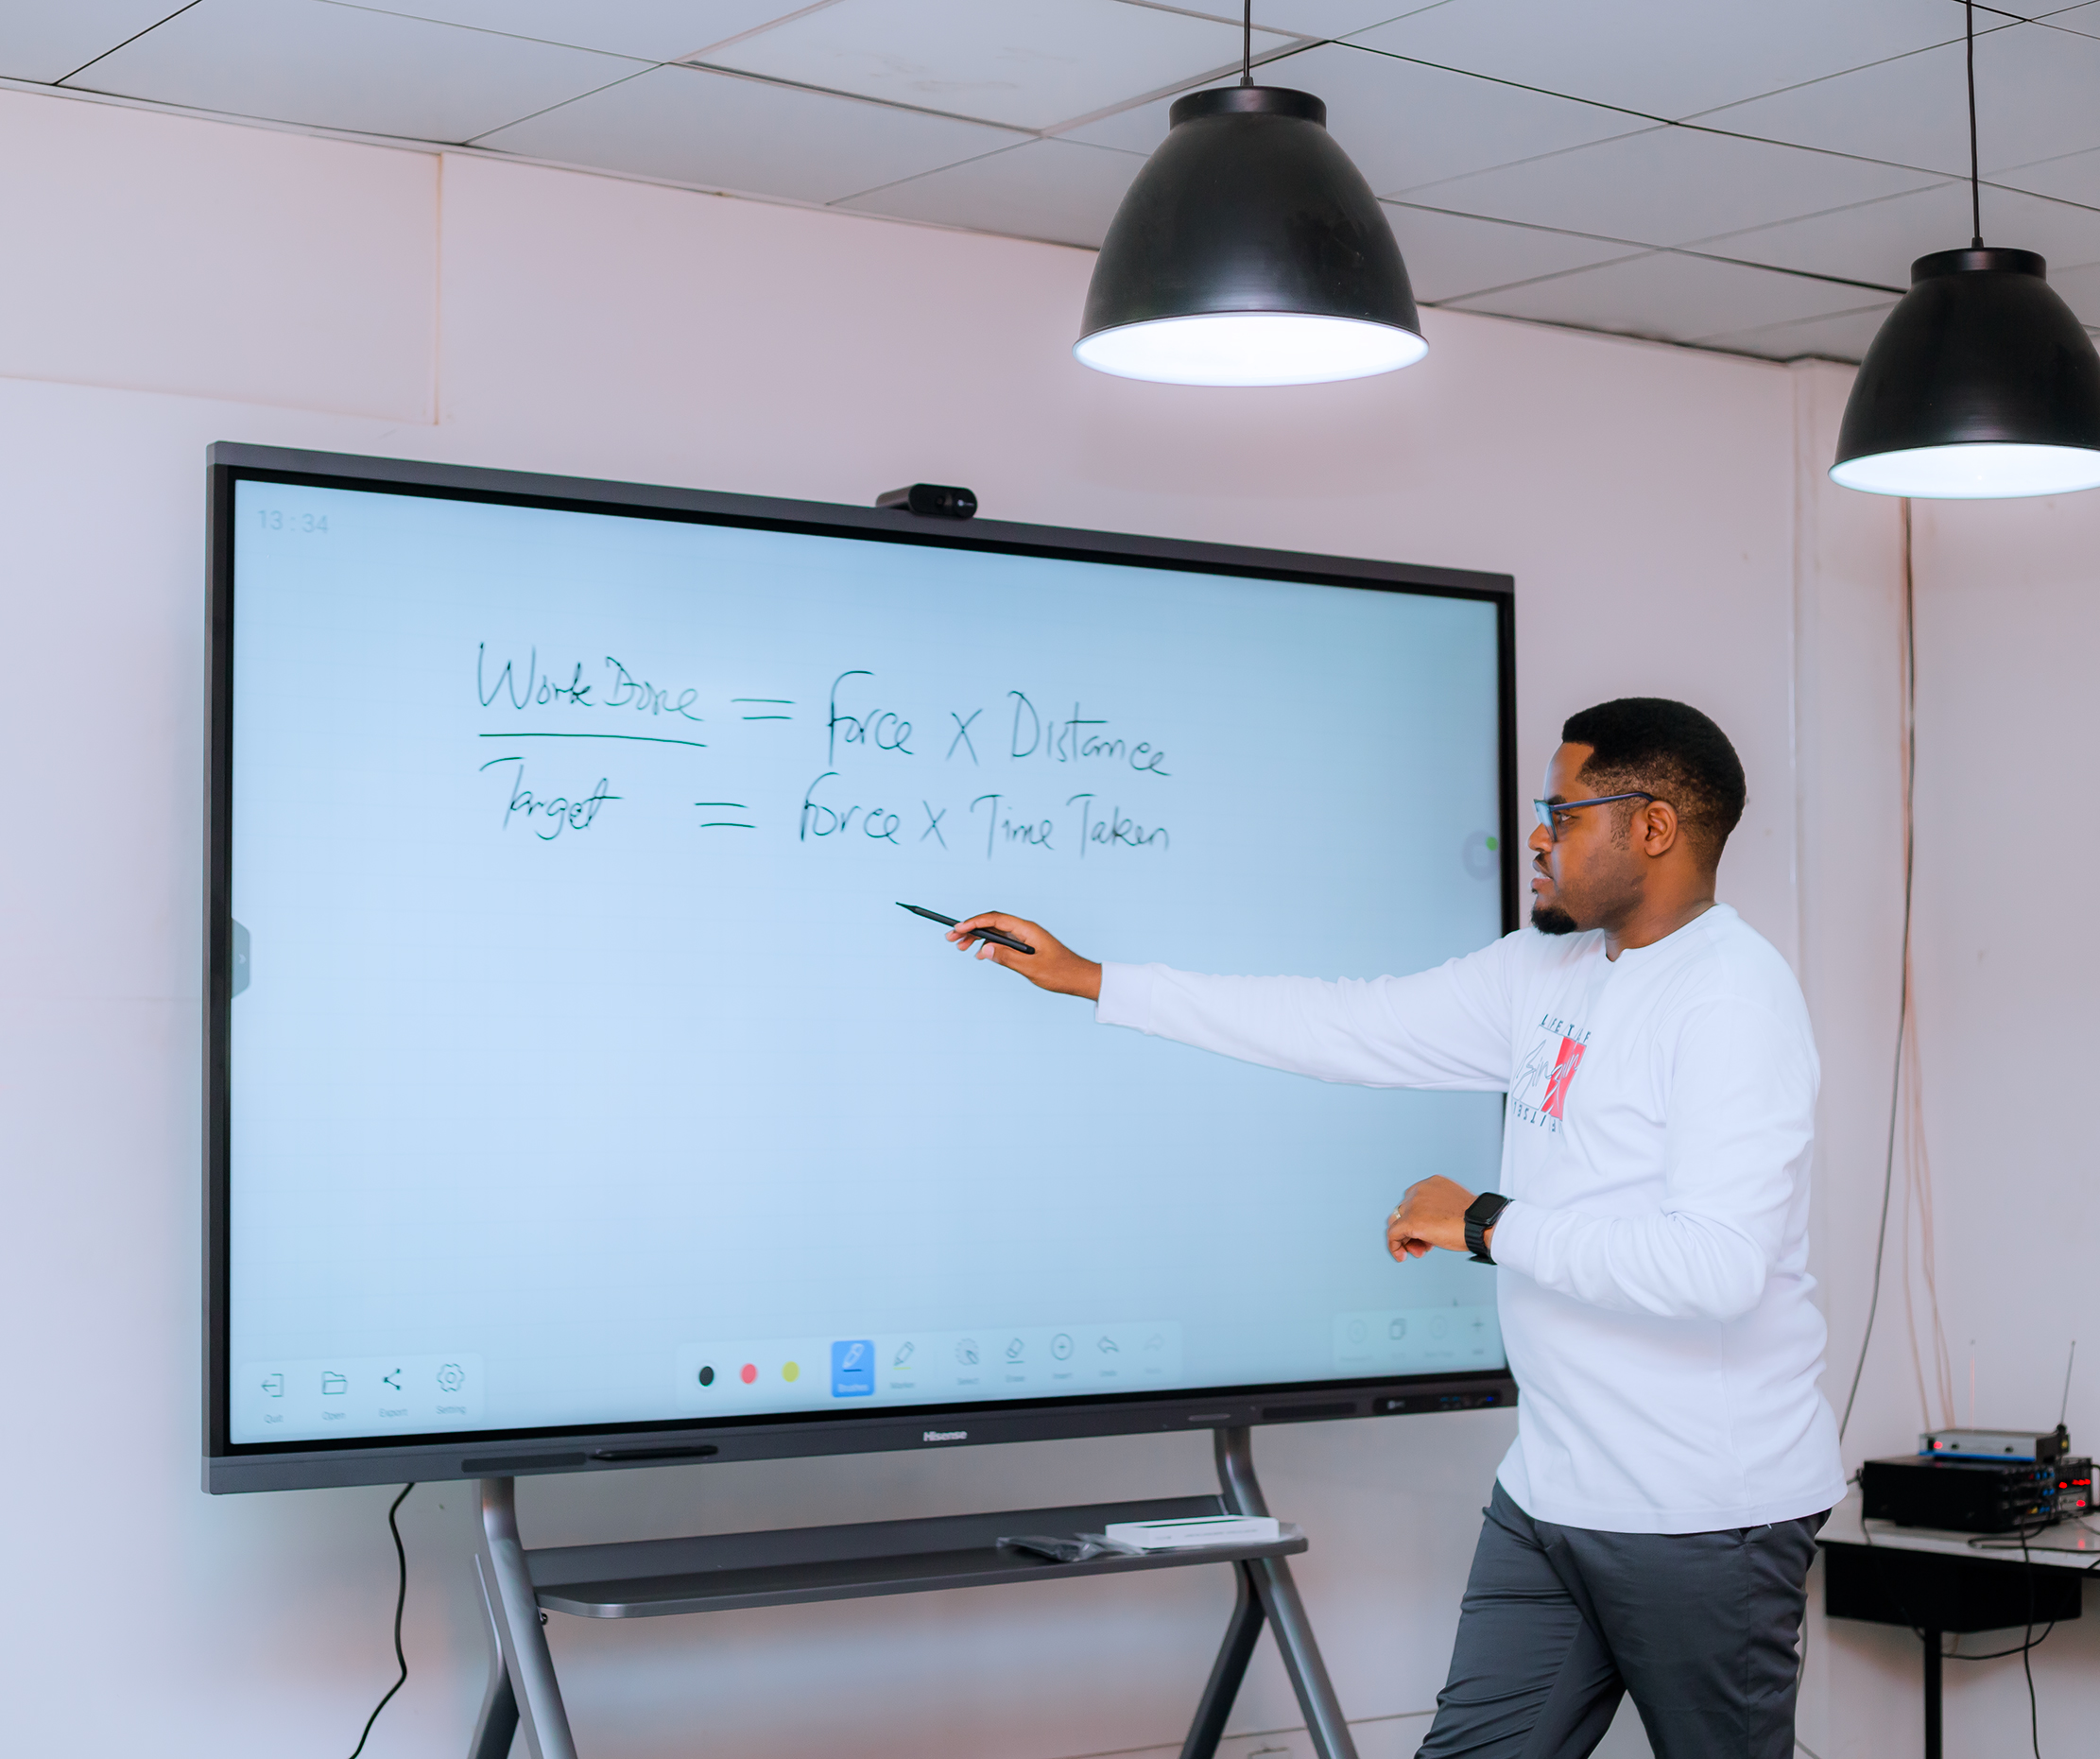 13:34
Work Done = force X Distance
Target = force X Time Taken
LIFETIF
Quit Open Export Setting
Brushes Marker Select Erase Insert Undo
Hisense